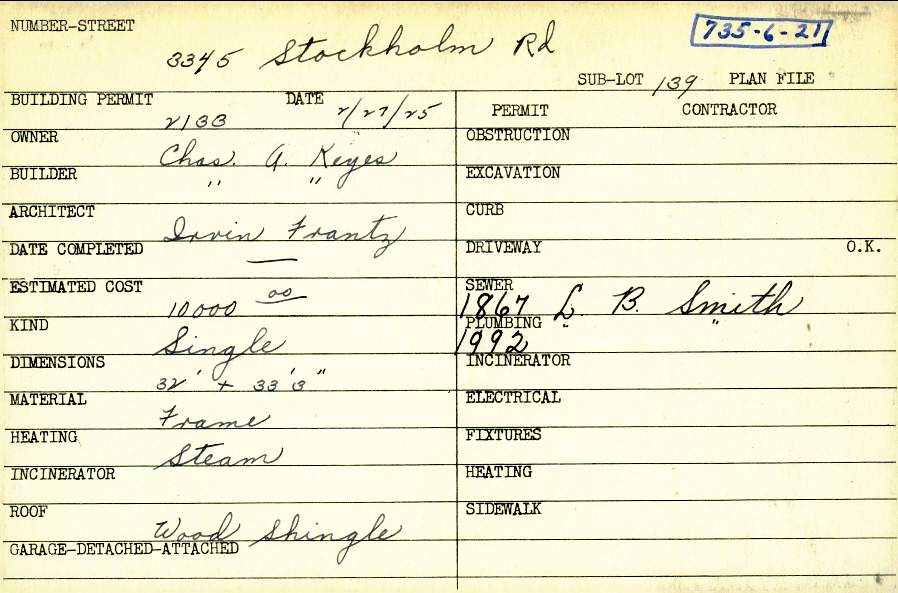 NUMBER-STREET
735-6-21
3345 Stockholm Rd
SUB-LOT 139 PLAN FILE
BUILDING PERMIT 2133 DATE 2/27/25
PERMIT CONTRACTOR
OWNER Chas. A. Keyes
OBSTRUCTION
BUILDER " "
EXCAVATION
ARCHITECT Irvin Frantz
CURB
DATE COMPLETED —
DRIVEWAY O.K.
ESTIMATED COST 10000 00
SEWER 1867 L. B. Smith
KIND Single
PLUMBING 1992 " "
DIMENSIONS 32' + 33'3"
INCINERATOR
MATERIAL Frame
ELECTRICAL
HEATING Steam
FIXTURES
INCINERATOR
HEATING
ROOF Wood Shingle
SIDEWALK
GARAGE-DETACHED-ATTACHED